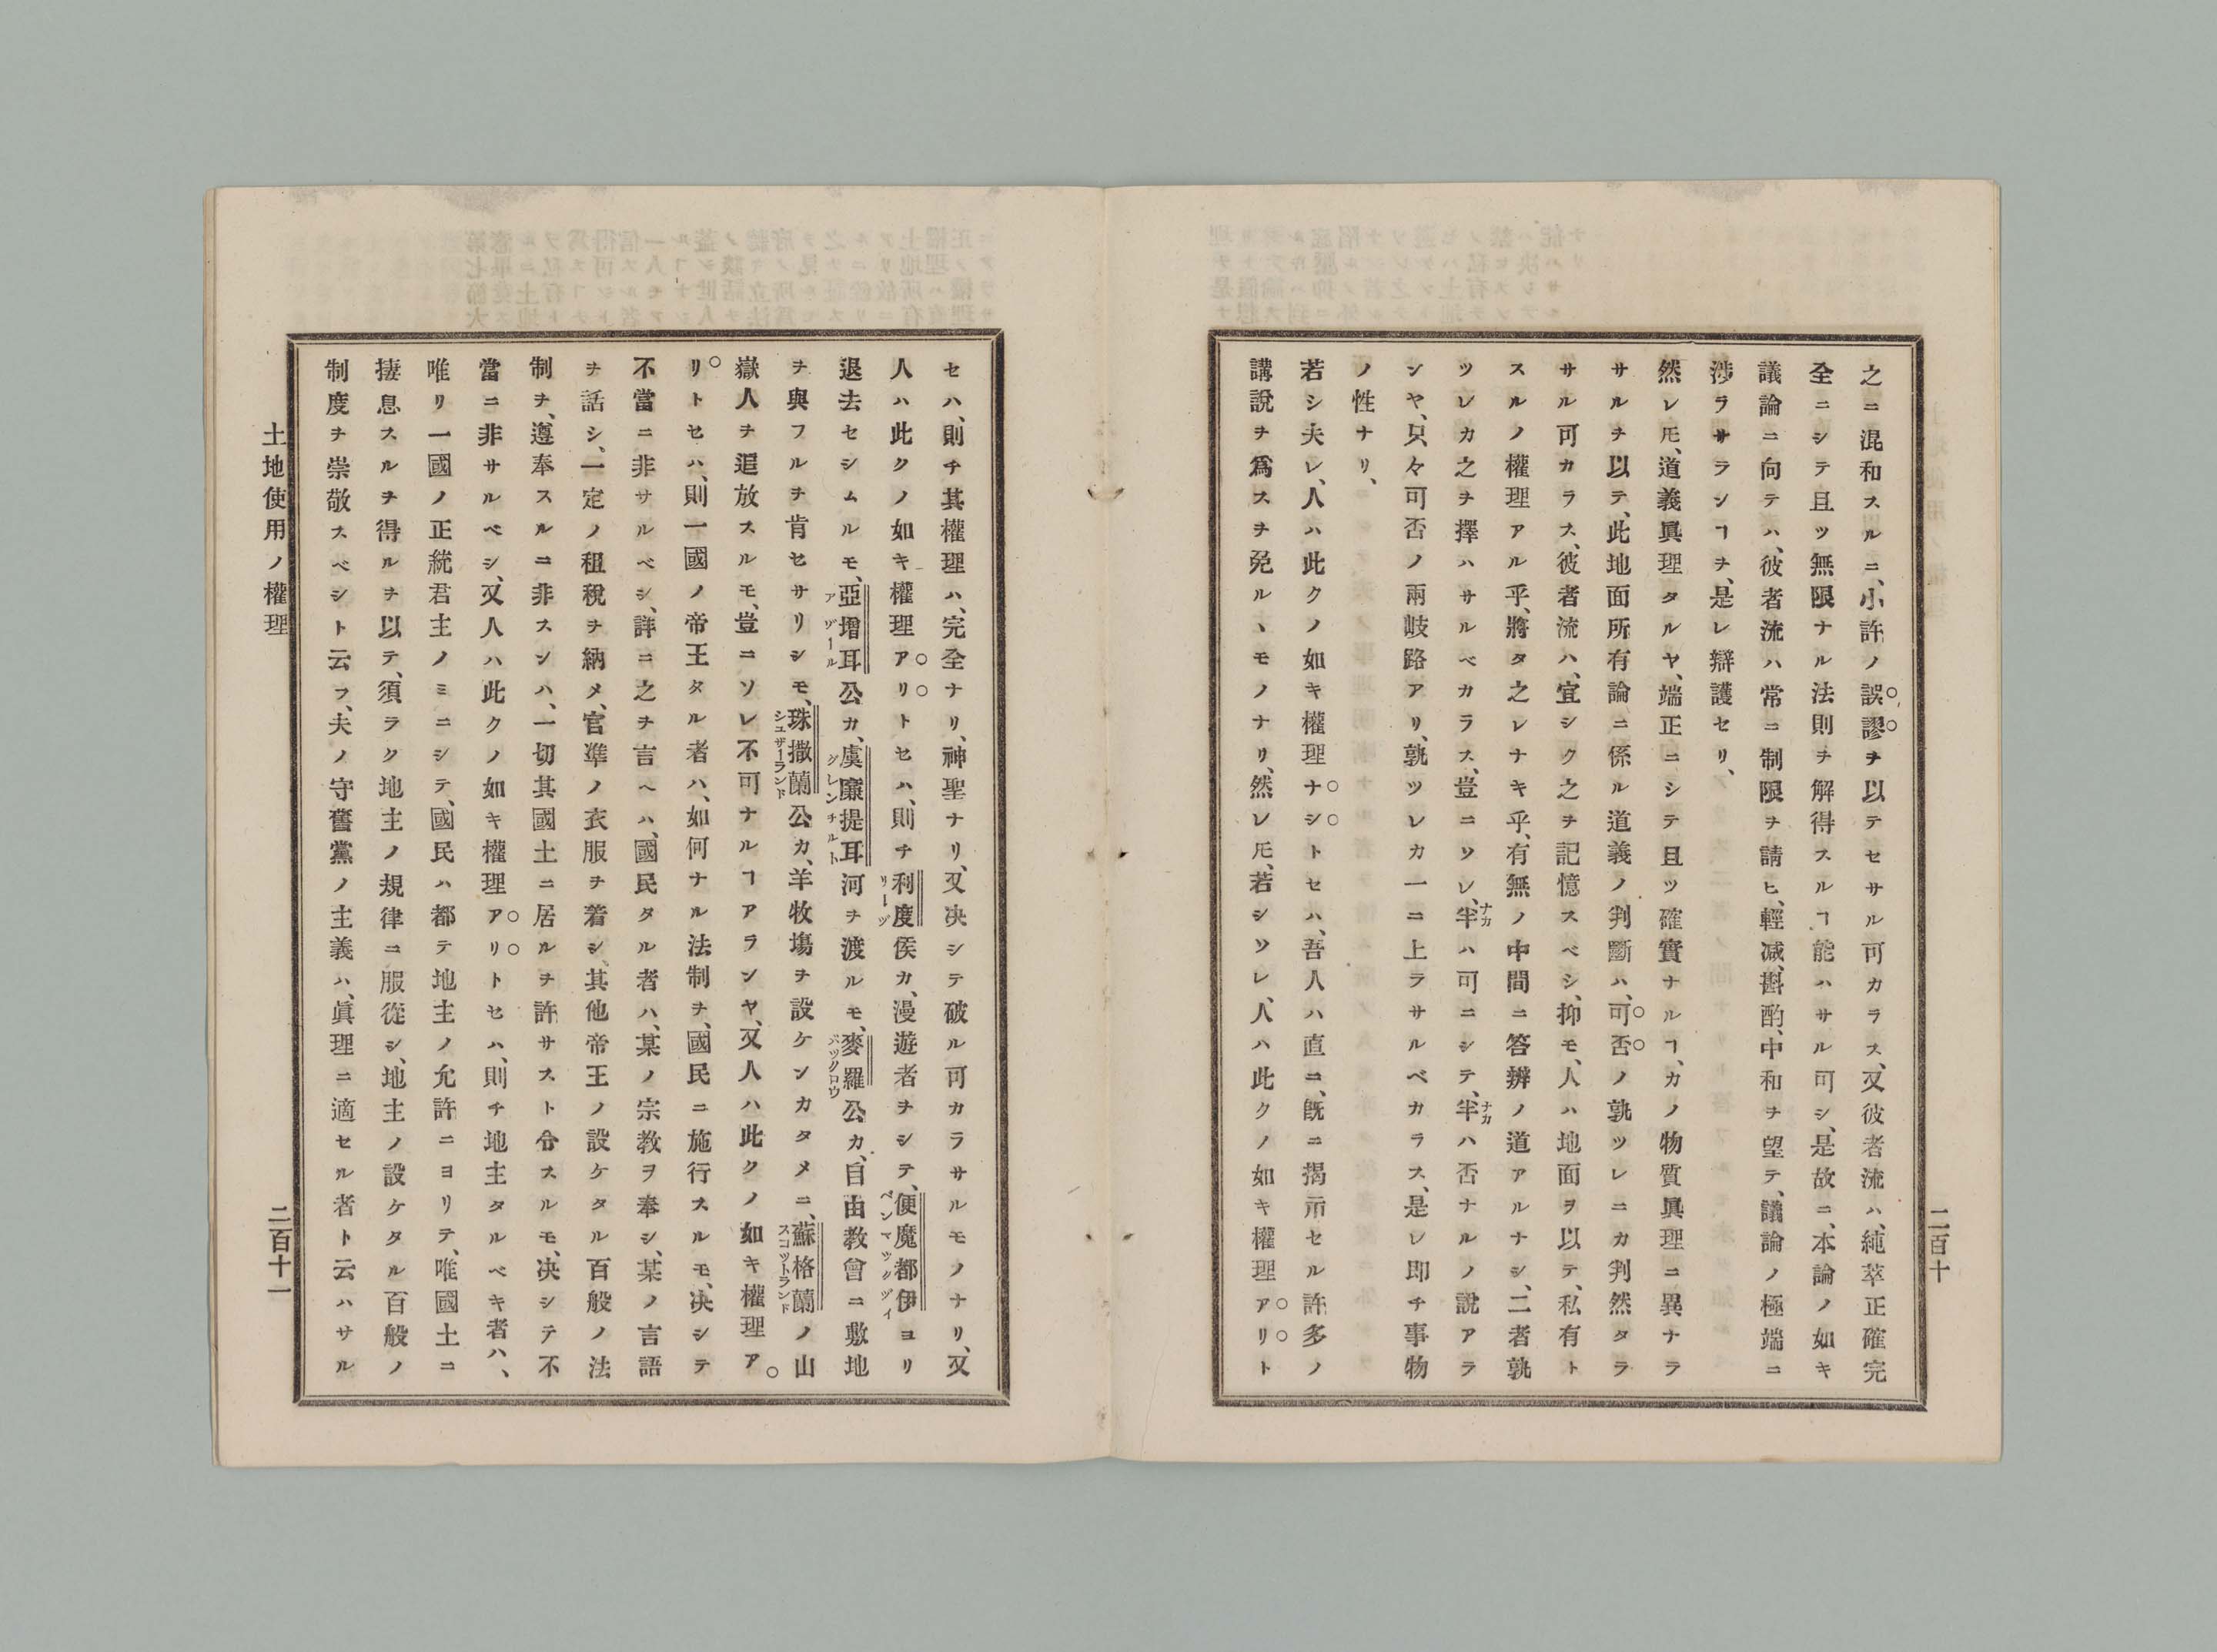 之ニ混和スルニ、小許ノ誤謬ヲ以テセサル可カラス、又彼者流ハ、純萃正確完
全ニシテ且ツ無限ナル法則ヲ解得スルヿ能ハサル可シ、是故ニ、本論ノ如キ
議論ニ向テハ、彼者流ハ常ニ制限ヲ請ヒ、輕减、斟酌、中和ヲ望テ、議論ノ極端ニ
渉ラサランヿヲ、是レ辯護セリ、
然レ𪜈、道義眞理タルヤ、端正ニシテ且ツ確實ナルヿ、カノ物質眞理ニ異ナラ
サルヲ以テ、此地面所有論ニ係ル道義ノ判斷ハ、可否ノ孰ツレニカ判然タラ
サル可カラス、彼者流ハ、宜シク之ヲ記憶スベシ、抑モ、人ハ地面ヲ以テ、私有ト
スルノ權理アル乎、將タ之レナキ乎、有無ノ中間ニ答辨ノ道アルナシ、二者孰
ツレカ之ヲ擇ハサルベカラス、豈ニソレ、半ナカハ可ニシテ、半ナカハ否ナルノ說アラ
ンヤ、只々可否ノ兩岐路アリ、孰ツレカ一ニ上ラサルベカラス、是レ即チ事物
ノ性ナリ、
若シ夫レ、人ハ此クノ如キ權理ナシトセハ、吾人ハ直ニ、旣ニ揭ケ示セル許多ノ
講說ヲ爲スヲ免ルヽモノナリ、然レ𪜈、若シソレ、人ハ此クノ如キ權理アリト
二百十
セハ、則チ其權理ハ、完全ナリ、神聖ナリ、又决シテ破ル可カラサルモノナリ、又
人ハ此クノ如キ權理アリトセハ、則チ利度リーヅ侯カ、漫遊者ヲシテ、便魔都伊ベンマックヅイヨリ
退去セシムルモ、亞增耳アヅール公カ、虞廉提耳グレンチルト河ヲ渡ルモ、麥羅バックロウ公カ、自由教會ニ敷地
ヲ與フルヲ肯セサリシモ、珠撒蘭シュザーランド公カ、羊牧塲ヲ設ケンカタメニ、蘇格蘭スコットランドノ山
嶽人ヲ逭放スルモ、豈ニソレ不可ナルヿアランヤ、又人ハ此クノ如キ權理ア
リトセハ、則一國ノ帝王タル者ハ、如何ナル法制ヲ、國民ニ施行スルモ、决シテ
不當ニ非サルベシ、詳ニ之ヲ言ヘハ、國民タル者ハ、某ノ宗教ヲ奉シ、某ノ言語
ヲ話シ、一定ノ租稅ヲ納メ、官準ノ衣服ヲ着シ、其他帝王ノ設ケタル百般ノ法
制ヲ、遵奉スルニ非スンハ、一切其國土ニ居ルヲ許サスト令スルモ、决シテ不
當ニ非サルベシ、又人ハ此クノ如キ權理アリトセハ、則チ地主タルベキ者ハ、
唯リ一國ノ正統君主ノミニシテ、國民ハ都テ地主ノ允許ニヨリテ、唯國土ニ
捿息スルヲ得ルヲ以テ、須ラク地主ノ規律ニ服從シ、地主ノ設ケタル百般ノ
制度ヲ崇敬スベシト云フ、夫ノ守舊黨ノ主義ハ、眞理ニ適セル者ト云ハサル
土地使用ノ權理
二百十一